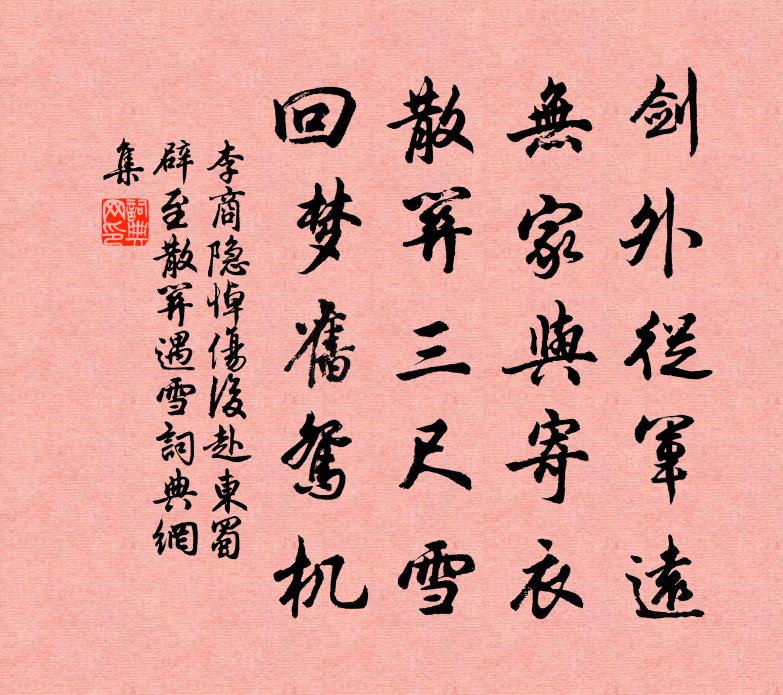 剑外從軍遠
無家與寄衣
散關三尺雪
回梦舊鴛机
李商隐悼傷後赴東蜀
辟至散關遇雪詞典網
集
詞典
网印